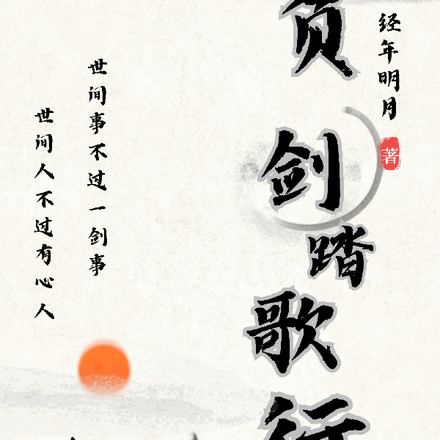 经年明月
著
负剑踏歌行
世间事不过一剑事
世间人不过有心人